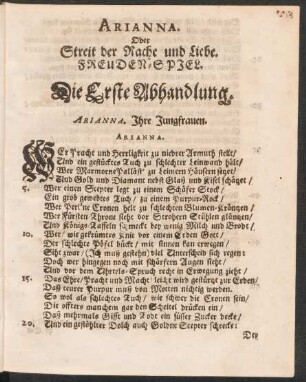 ARIANNA.
Oder
Streit der Rache und Liebe.
FREUDEN-SPIEL.
Die Erste Abhandlung.
ARIANNA. Ihre Jungfrauen.
ARIANNA.
WEr Pracht und Herrligkeit zu niedrer Armuth stellt/
Und ein gestücktes Tuch zu schlechter Leinwand hält/
Wer Marmorne Palläst' zu leimern Häusern setzet/
Und Gold und Diamant nebst Glaß und Kisel schätzet/
5. Wer einen Scepter legt zu einem Schäfer Stock/
Ein grob gewebtes Tuch/ zu einem Purpur-Rock/
Wer Perl'ne Cronen helt zu schlechten Blumen-Kräntzen/
Wer Fürsten Throne siehe vor Strohern Stühlen gläntzen/
Und Königs-Taffeln schmeckt bey wenig Milch und Brodt/
10. Wer/ wie gekrümmtes Knie vor einem Erden Gott/
Der schlechte Pöfel bückt/ mit sinnen kan erwegen/
Siht zwar/ (Ich muß gestehn) viel Unterscheid sich regen:
Doch wer hingegen noch mit schärffern Augen sieht/
Und vor dem Uhrtels-Spruch recht in Erwegung zieht/
15. Das Ehre/ Pracht und Macht/ leicht wird gestürtzt zur Erden/
Daß teurer Purpur muß von Motten nichtig werden.
So wol als schlechtes Tuch/ wie schwer die Cronen sein/
Die offters manchem gar den Scheitel drücken ein/
Daß mehrmals Gifft und Todt ein süsser Zucker decke/
20. Und ein gestählter Dolch auch Goldne Scepter schrecke:
Der